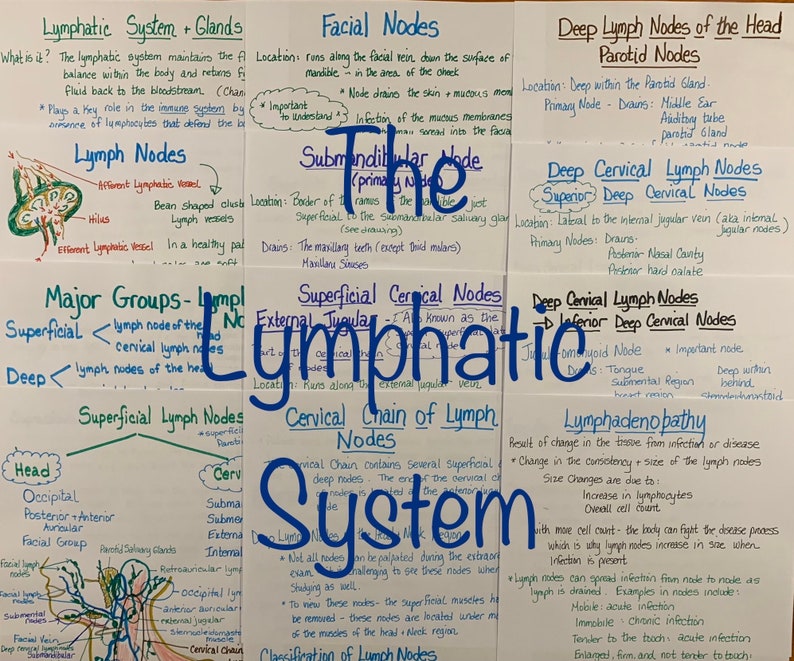 Lymphatic System + Glands
What is it? The lymphatic system maintains the fl
balance within the body and returns f
fluid back to the bloodstream. (Chan
* Plays a key role in the immune system by
presence of lymphocytes that defend the b
Lymph Nodes
Afferent Lymphatic Vessel
Bean shaped clust
Lymph vessels
Hilus
Efferent Lymphatic Vessel
In a healthy pat
Major Groups - Lymph
No
Superficial
lymph node of the
cervical lymph nodes
Deep
lymph nodes of the hea
Superficial Lymph Nodes
* superfici
Paroti
Head
Occipital
Posterior + Anterior
Auricular
Facial Group
Cerv
Subma
Submen
Externa
Interna
Parotid Salivary Glands
Facial lymph
nodes
Retroauricular lymp
Facial lymph
nodes
Occipital ly
Submental
nodes
anterior auricular
external jugular
Sternocleidomast
muscle
Facial Vein
Deep cervical lymph nodes
Submandibular
Cervical Chain
Facial Nodes
Location: runs along the facial vein down the surface of
mandible → in the area of the cheek
* Important
to understand *
* Node drains the skin + mucous mem
Infection of the mucous membranes
spread into the facia
Submandibular Node
(primary Node)
Location: Border of ramus mandible just
Superficial to the Submandibular salivary glan
(see drawing)
Drains: The maxillary teeth (except third molars)
Maxillary Sinuses
Superficial Cervical Nodes
External Jugular - Also known as the
superficial
cervical
Part of the cervical chain
of nodes
Location: Runs along the external jugular vein
Cervical Chain of Lymph
Nodes
Cervical Chain contains several superficial
deep nodes. The end of the cervical c
nodes is located anterior
node
Deep Lymph Nodes Neck Region
* Not all nodes can be palpated during the extraor
exam. challenging to see these nodes when
Studying as well.
* To view these nodes - the superficial muscles h
be removed - these nodes are located under m
of the muscles of the head + Neck region.
Classification of Lymph Nodes
Deep Lymph Nodes of the Head
Parotid Nodes
Location: Deep within the Parotid Gland.
Primary Node - Drains: Middle Ear
Auditory tube
parotid Gland
Deep Cervical Lymph Nodes
Superior Deep Cervical Nodes
Location: Lateral to the internal jugular vein (aka internal
jugular nodes)
Primary Nodes: Drains:
Posterior Nasal Cavity
Posterior hard palate
Deep Cervical Lymph Nodes
→ Inferior Deep Cervical Nodes
Jugulo-omohyoid Node * Important node
Drains: Tongue
Submental Region
Deep within
behind
sternocleidomastoid
Lymphadenopathy
Result of change in the tissue from infection or disease
* Change in the consistency + size of the lymph nodes
Size Changes are due to:
Increase in lymphocytes
Overall cell count
with more cell count - the body can fight the disease process
which is why lymph nodes increase in size when
infection is present
* Lymph nodes can spread infection from node to node as
lymph is drained. Examples in nodes include:
Mobile: acute infection
Immobile: Chronic infection
Tender to the touch: acute infection
Enlarged, firm, and not tender to touch:
The
Lymphatic
System